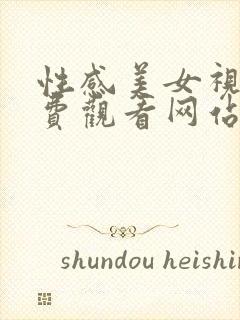 性感美女視
費觀看网佔
shundou heishin